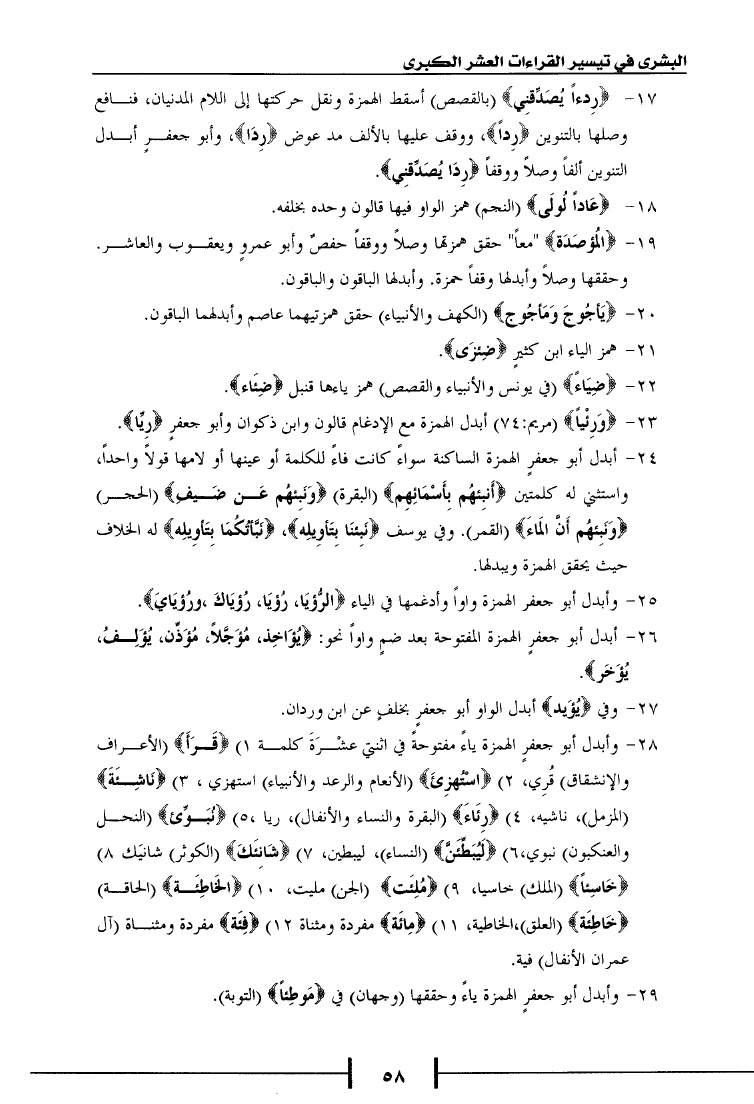 البشرى في تيسير القراءات العشر الكبرى
١٧- ﴿رِدءاً يُصَدِّقنِي﴾ (بالقصص) أسقط الهمزة ونقل حركتها إلى اللام المدنيان، فنـافع
وصلها بالتنوين ﴿رِداً﴾، ووقف عليها بالألف مد عوض ﴿رِدَا﴾، وأبو جعفـرٍ أبـدل
التنوين ألفاً وصلاً ووقفاً ﴿رِدَا يُصَدِّقنِي﴾.
١٨- ﴿عَاداً لُولَى﴾ (النجم) همز الواو فيها قالون وحده بخلفه.
١٩- ﴿الْمُؤصَدَة﴾ "معاً" حقق همزتها وصلاً ووقفاً حفصٌ وأبو عمروٍ ويعقـوب والعاشـر.
وحققها وصلاً وأبدلها وقفاً حمزة. وأبدلها الباقون والباقون.
٢٠- ﴿يَأجُوجَ وَمَأجُوج﴾ (الكهف والأنبياء) حقق همزتيهما عاصم وأبدلهما الباقون.
٢١- همز الياء ابن كثيرٍ ﴿ضِئزَى﴾.
٢٢- ﴿ضِيَاءً﴾ (في يونس والأنبياء والقصص) همز ياءها قنبل ﴿ضِئَاء﴾.
٢٣- ﴿وَرِئْياً﴾ (مريم:٧٤) أبدل الهمزة مع الإدغام قالون وابن ذكوان وأبو جعفرٍ ﴿رِيِّا﴾.
٢٤- أبدل أبو جعفرٍ الهمزة الساكنة سواءً كانت فاءً للكلمة أو عينها أو لامها قولاً واحداً،
واستثني له كلمتين ﴿أَنبِئهُم بِأَسْمَائِهِم﴾ (البقرة) ﴿وَنَبئهُم عَـن ضَـيفِ﴾ (الحجـر)
﴿وَنَبئهُم أَنَّ المَاءَ﴾ (القمر). وفي يوسف ﴿نَبئنَا بِتَأويلِه﴾، ﴿نَبَّأتُكُمَا بِتَأوِيلِه﴾ له الخلاف
حيث يحقق الهمزة ويبدلها.
٢٥- وأبدل أبو جعفرٍ الهمزة واواً وأدغمها في الياء ﴿الرُّؤيَا، رُؤيَا، رُؤيَاكَ ،ورُؤيَايَ﴾.
٢٦- أبدل أبو جعفرٍ الهمزة المفتوحة بعد ضمٍ واواً نحو: ﴿يُؤَاخِذ، مُؤَجَّلاً، مُؤَذِّن، يُؤَلِـفُ،
يُؤَخَر﴾.
٢٧- وفي ﴿يُؤَيد﴾ أبدل الواو أبو جعفرٍ بخلفٍ عن ابن وردان.
٢٨- وأبدل أبو جعفرٍ الهمزة ياءً مفتوحةً في اثنتي عشْـرَةَ كلمـة ١) ﴿قُـرِأَ﴾ (الأعـراف
والإنشقاق) قُرِي، ٢) ﴿اسْتُهزِئَ﴾ (الأنعام والرعد والأنبياء) استهزي ، ٣) ﴿نَاشِـئَةَ﴾
(المزمل)، ناشيه، ٤) ﴿رِئَاءَ﴾ (البقرة والنساء والأنفال)، ريا ،٥) ﴿نُبَـوِّئ﴾ (النحـل
والعنكبون) نبوي،٦) ﴿لَيُبَطِّئَنَّ﴾ (النساء)، ليبطين، ٧) ﴿شَانِئَكَ﴾ (الكوثر) شانيَك ٨)
﴿خَاسِئاً﴾ (الملك) خاسيا، ٩) ﴿مُلِئَت﴾ (الجن) مليت، ١٠) ﴿الْخَاطِئَـة﴾ (الحاقـة)
﴿خَاطِئَة﴾ (العلق)،الخاطية، ١١) ﴿مِائَة﴾ مفردة ومثناة ١٢) ﴿فِئَة﴾ مفردة ومثنـاة (آل
عمران الأنفال) فية.
٢٩- وأبدل أبو جعفرٍ الهمزة ياءً وحققها (وجهان) في ﴿مَوطِئاً﴾ (التوبة).
٥٨